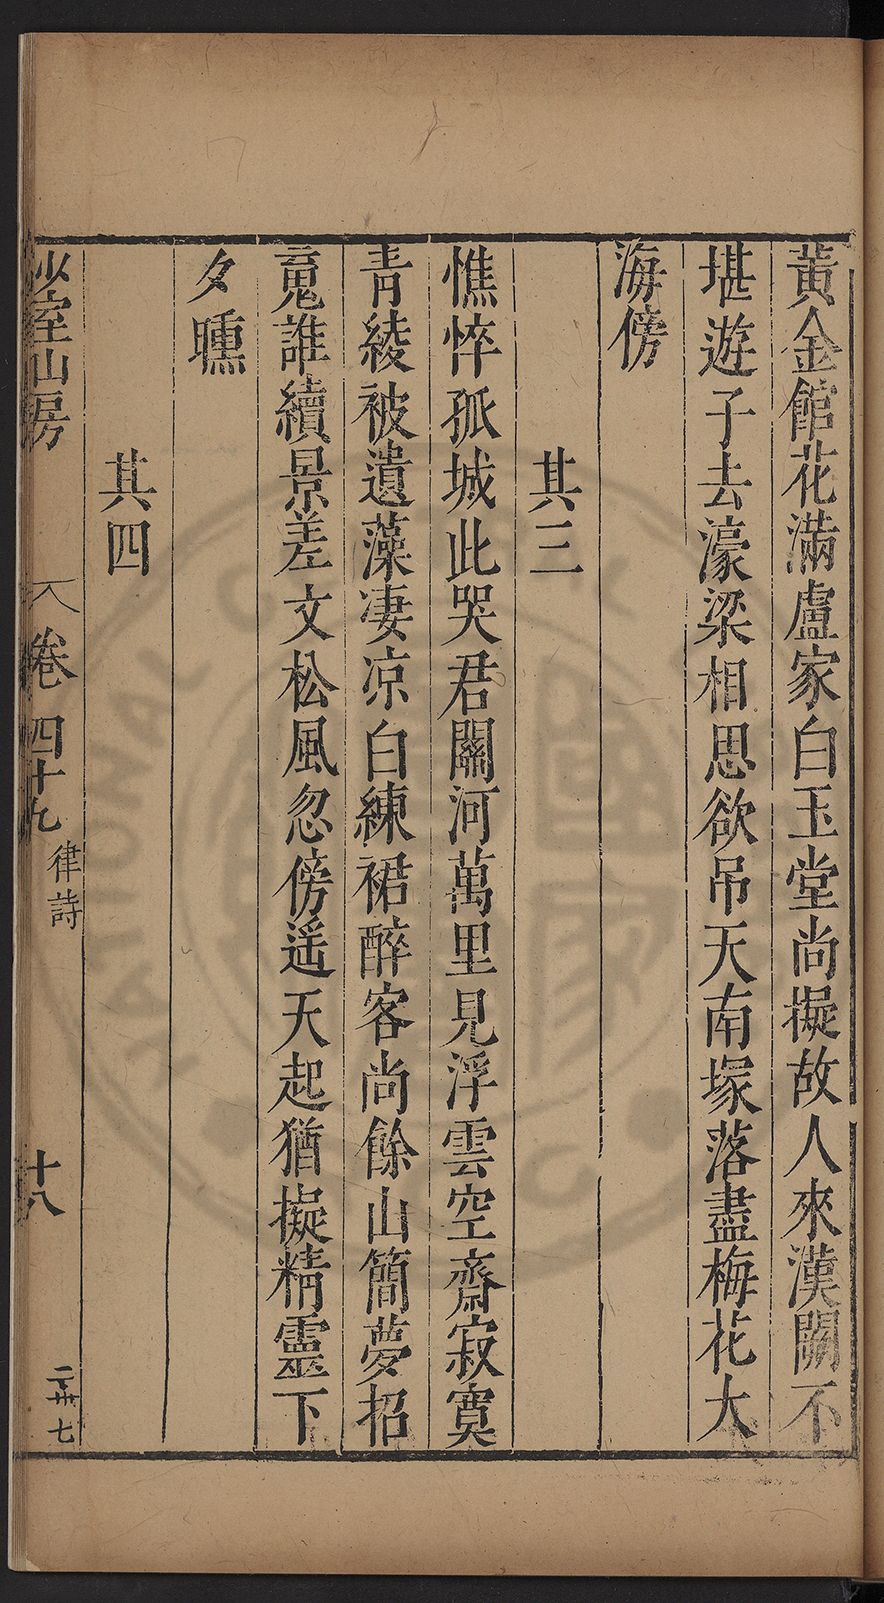 黃金館花滿盧家白玉堂尚擬故人來漢闕不
堪遊子去濠梁相思欲吊天南塚落盡梅花大
海傍
其三
憔悴孤城此哭君關河萬里見浮雲空齋寂寞
青綾被遺藻凄凉白練裙醉客尚餘山簡夢招
䰟誰續景差文松風忽傍遥天起猶擬精靈下
夕曛
其四
少室山房
卷四十九
律詩
十八
二卌七